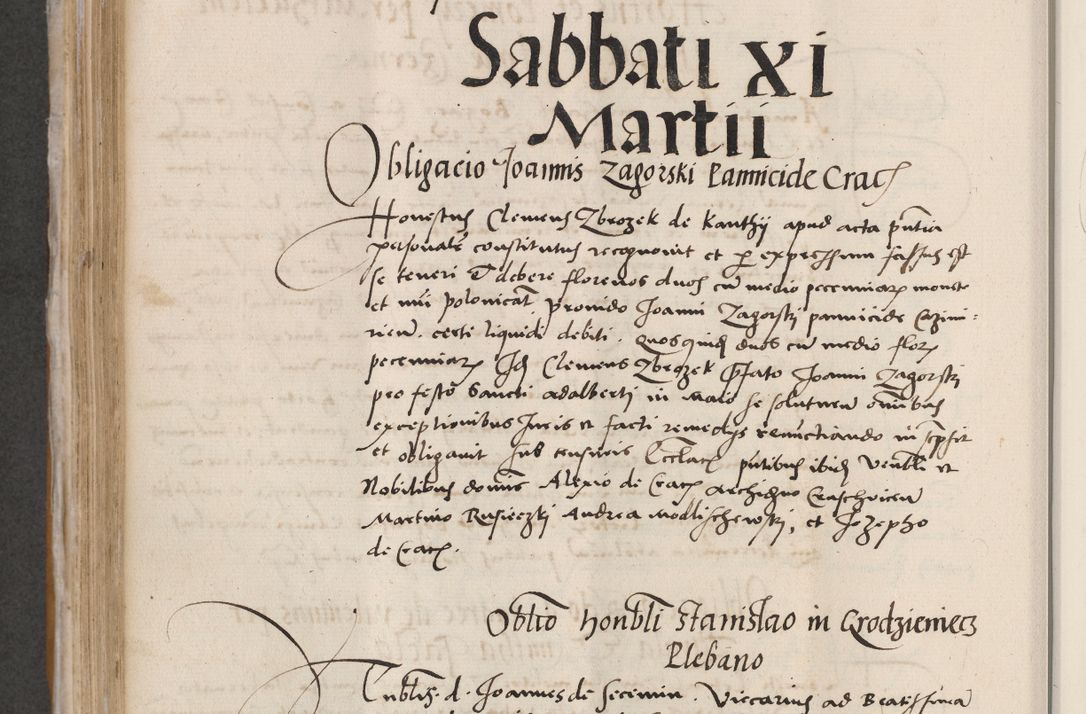 Sabbati xi
Martii
Obligacio Joannis Zagorski Pannicide Crac
Honestus Clemens Zbrozek de Kanthy apud acta putia
personalr constitutus recognouit et p expressum fassus est
se teneri et debere florenos duos cu medio pecceniarp monete
et nui polonicat Prouido Joanni Zagorski pannicide Cazimi-
rien. certi liquidi debiti. Quosquid duos cu medio flor
pecceniar Id Clemens Zbrozek Pfato Joanni Zagorski
pro festo Sancti Adalberti in Maio se soluturu omibus
exceptionibus Juris et facti remedys renuctiando inscpsit
et obligauit sub censuris Ecclac putibus ibid Venbli et
Nobilibus domis Alexio de Crac archidno Craschouien
Martino Rusieczki Andrea Modlischewski, et Jozepho
de Crac.
Obltio honbli Stanislao in Grodzieniecz
Plebano
d. Joannes de Secemin. Viccarius ad Beatissima